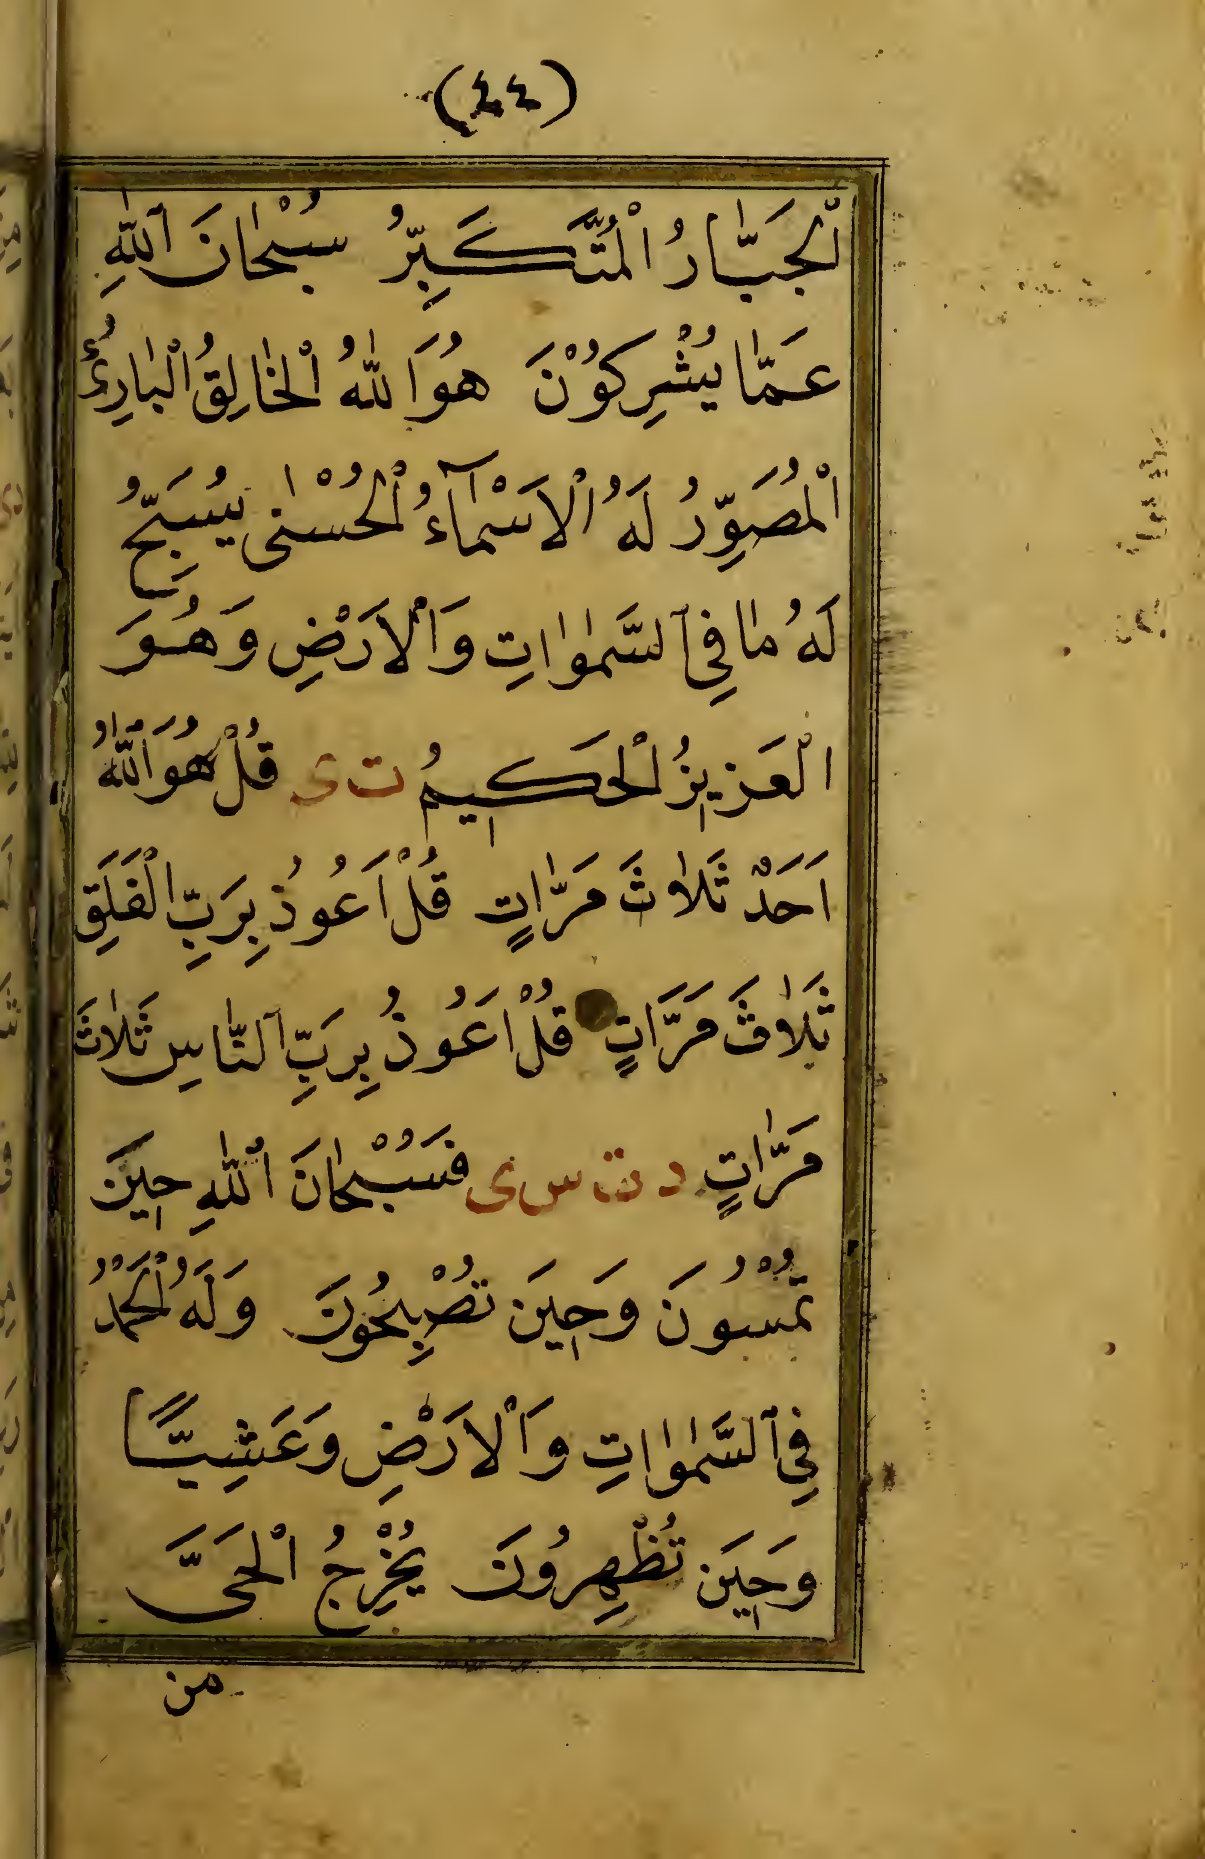 (٤٤)
الْجَبَّارُ الْمُتَكَبِّرُ سُبْحَانَ اللّٰهِ
عَمَّا يُشْرِكُوْنَ هُوَ اللّٰهُ الْخَالِقُ الْبَارِئُ
الْمُصَوِّرُ لَهُ الْاَسْمَآءُ الْحُسْنٰى يُسَبِّحُ
لَهُ مَا فِي السَّمٰوَاتِ وَالْاَرْضِ وَهُوَ
الْعَزِيزُ الْحَكِيمُ ت ى قُلْ هُوَ اللّٰهُ
اَحَدٌ ثَلَاثَ مَرَّاتٍ قُلْ اَعُوذُ بِرَبِّ الْفَلَقِ
ثَلَاثَ مَرَّاتٍ قُلْ اَعُوذُ بِرَبِّ النَّاسِ ثَلَاثَ
مَرَّاتٍ د ت س ى فَسُبْحَانَ اللّٰهِ حِينَ
تُمْسُونَ وَحِينَ تُصْبِحُونَ وَلَهُ الْحَمْدُ
فِي السَّمٰوَاتِ وَالْاَرْضِ وَعَشِيًّا
وَحِينَ تُظْهِرُونَ يُخْرِجُ الْحَىَّ
من